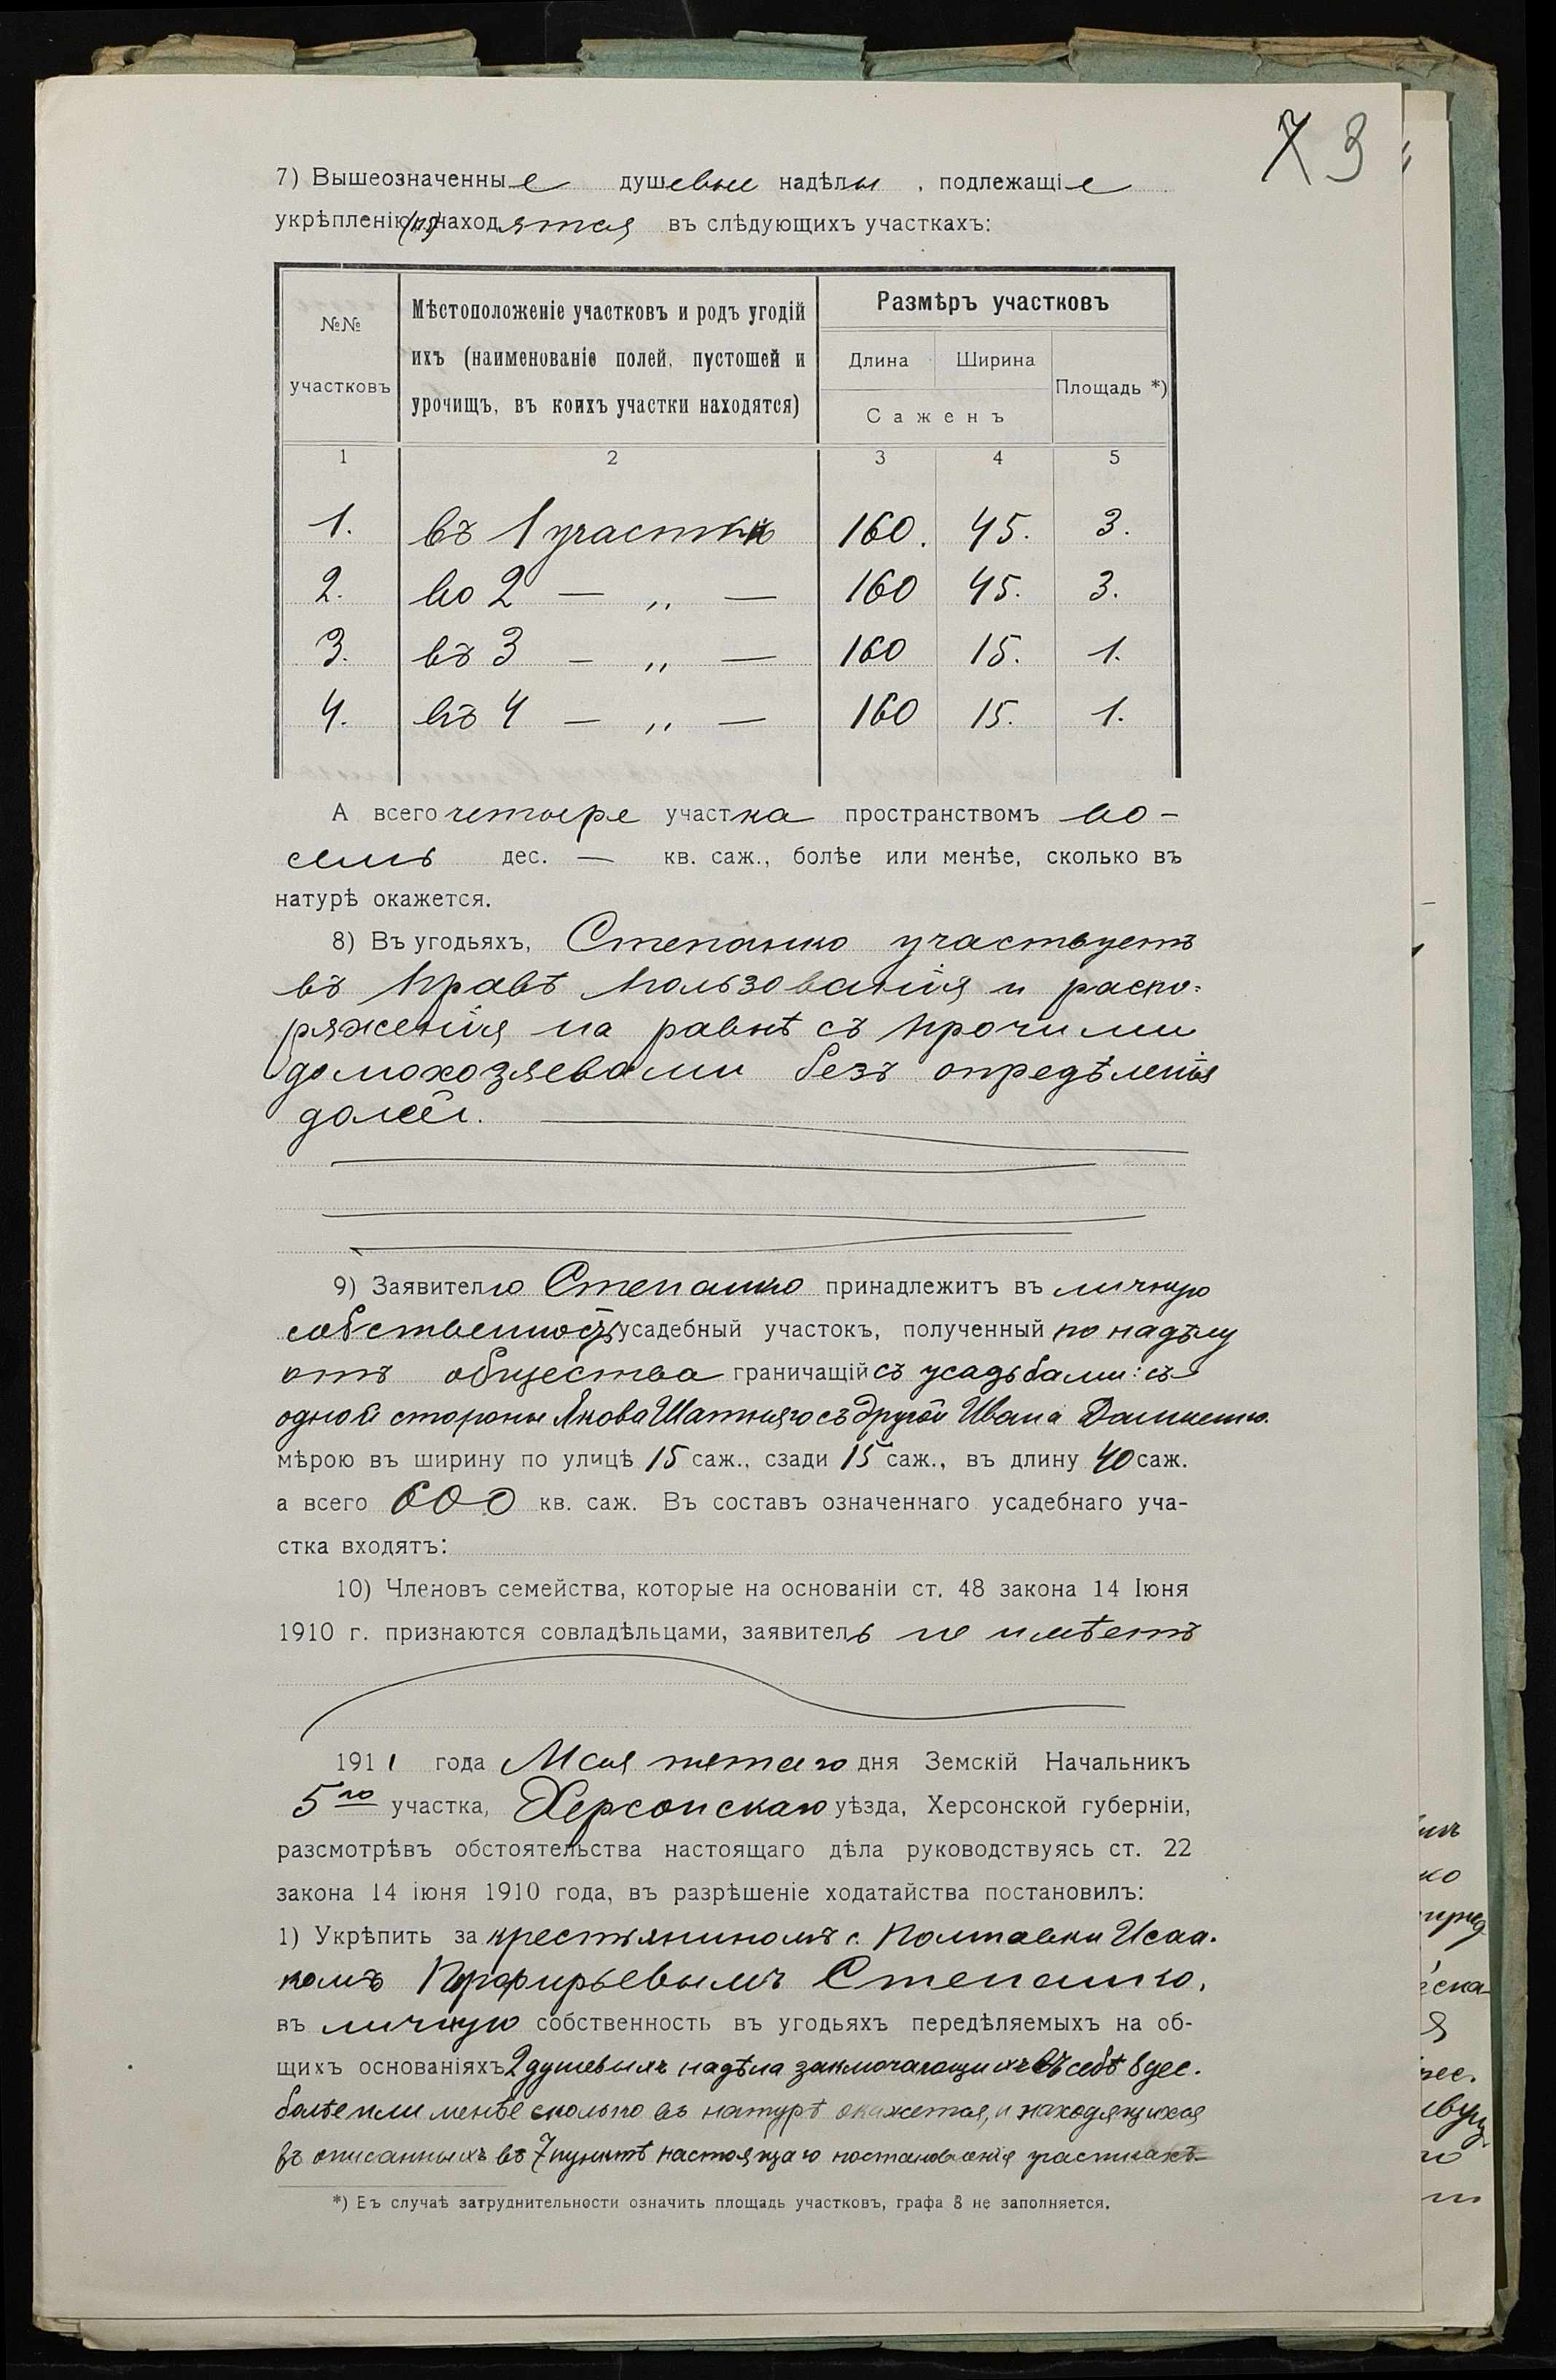 3
7) Вышеозначенные душевые надѣлы , подлежащіе
укрѣпленію находятся въ слѣдующихъ участкахъ:
№№ участковъ
Мѣстоположеніе участковъ и родъ угодій
ихъ (наименованіе полей, пустошей и
урочищъ, въ коихъ участки находятся)
Размѣръ участковъ
Длина Ширина Площадь *)
Саженъ
1 2 3 4 5
1. въ 1 участкѣ 160. 45. 3.
2. во 2 — „ — 160 45. 3.
3. въ 3 — „ — 160 15. 1.
4. въ 4 — „ — 160 15. 1.
А всего четыре участка пространствомъ во-
семь дес. — кв. саж., болѣе или менѣе, сколько въ
натурѣ окажется.
8) Въ угодьяхъ, Степанко участвуетъ
въ правѣ пользованія и распо-
ряженія на равнѣ съ прочими
домохозяевами безъ опредѣленія
долей.
9) Заявителю Степанко принадлежитъ въ личную
собственность усадебный участокъ, полученный по надѣлу
отъ общества граничащій съ усадьбами: съ
одной стороны Якова Шаткаго съ другой Ивана
мѣрою въ ширину по улицѣ 15 саж., сзади 15 саж., въ длину 40 саж.
а всего 600 кв. саж. Въ составъ означеннаго усадебнаго уча-
стка входятъ:
10) Членовъ семейства, которые на основаніи ст. 48 закона 14 Іюня
1910 г. признаются совладѣльцами, заявитель не имѣетъ
1911 года Мая пятаго дня Земскій Начальникъ
5го участка, Херсонскаго уѣзда, Херсонской губерніи,
разсмотрѣвъ обстоятельства настоящаго дѣла руководствуясь ст. 22
закона 14 іюня 1910 года, въ разрѣшеніе ходатайства постановилъ:
1) Укрѣпить за крестьяниномъ с. Полтавки Исаа-
комъ Порфирьевымъ Степанко,
въ личную собственность въ угодьяхъ передѣляемыхъ на об-
щихъ основаніяхъ 2 душевыхъ надѣла заключающихъ въ себѣ 8 дес.
болѣе или менѣе сколько въ натурѣ окажется, и находящихся
въ описанныхъ въ 7 пунктѣ настоящаго постановленія участкахъ
*) Въ случаѣ затруднительности означить площадь участковъ, графа 3 не заполняется.